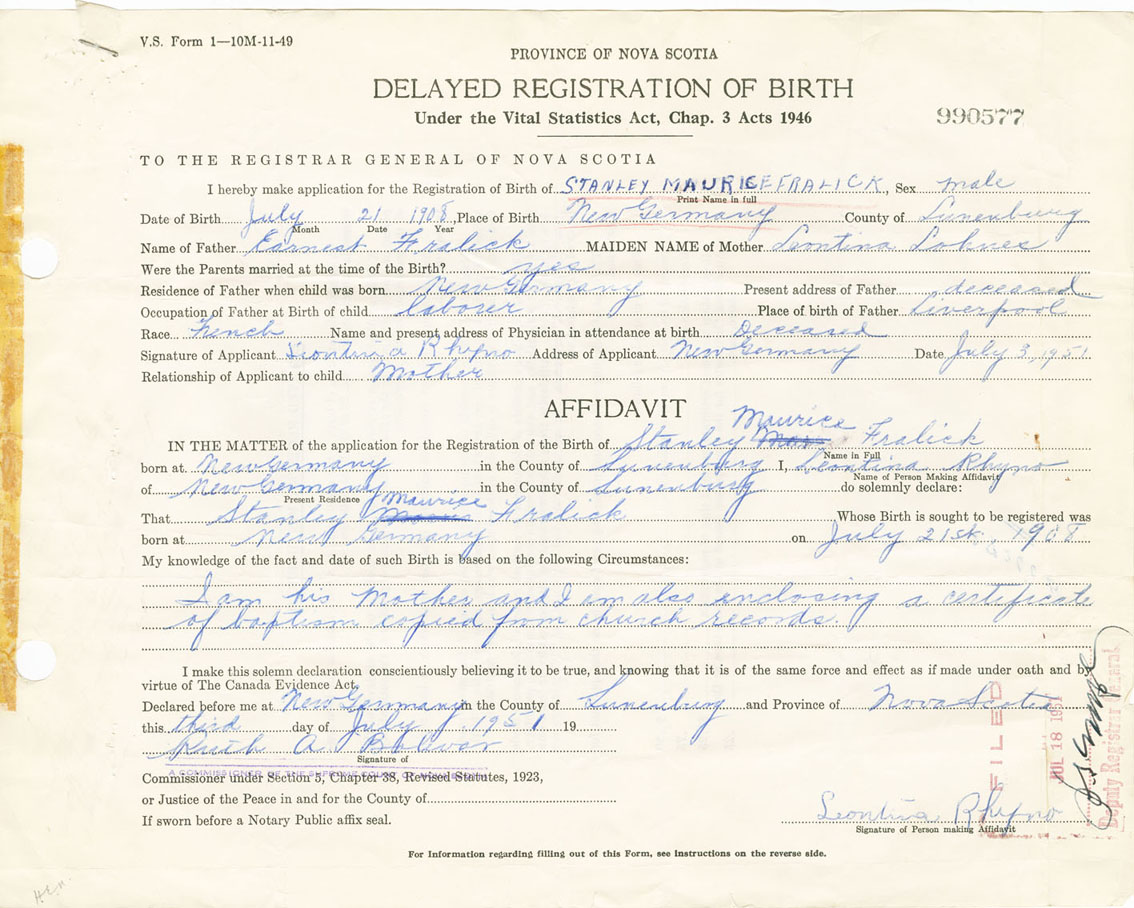 V.S. Form 1—10M-11-49
PROVINCE OF NOVA SCOTIA
DELAYED REGISTRATION OF BIRTH
Under the Vital Statistics Act, Chap. 3 Acts 1946
990577
TO THE REGISTRAR GENERAL OF NOVA SCOTIA
I hereby make application for the Registration of Birth of STANLEY MAURICE FRALICK, Sex male
Print Name in full
Date of Birth July 21 1908, Place of Birth New Germany County of Lunenburg
Month Date Year
Name of Father Earnest Fralick MAIDEN NAME of Mother Leontina Lohnes
Were the Parents married at the time of the Birth? yes
Residence of Father when child was born New Germany Present address of Father deceased
Occupation of Father at Birth of child laborer Place of birth of Father Liverpool
Race French Name and present address of Physician in attendance at birth Deceased
Signature of Applicant Leontina Rhyno Address of Applicant New Germany Date July 3, 1951
Relationship of Applicant to child Mother
AFFIDAVIT
Maurice
IN THE MATTER of the application for the Registration of the Birth of Stanley Fralick
Name in Full
born at New Germany in the County of Lunenburg I, Leontina Rhyno
Name of Person Making Affidavit
of New Germany in the County of Lunenburg do solemnly declare:
Present Residence
Maurice
That Stanley Fralick Whose Birth is sought to be registered was
born at New Germany on July 21st, 1908
My knowledge of the fact and date of such Birth is based on the following Circumstances:
I am his Mother and I am also enclosing a certificate
of baptism copied from church records.
I make this solemn declaration conscientiously believing it to be true, and knowing that it is of the same force and effect as if made under oath and by
virtue of The Canada Evidence Act.
Declared before me at New Germany in the County of Lunenburg and Province of Nova Scotia
this third day of July 1951 19
Ruth A. Bolivar
Signature of
A COMMISSIONER OF THE SUPREME COURT OF NOVA SCOTIA
Commissioner under Section 5, Chapter 38, Revised Statutes, 1923,
or Justice of the Peace in and for the County of
If sworn before a Notary Public affix seal.
Leontina Rhyno
Signature of Person making Affidavit
FILED
JUL 18 1951
Deputy Registrar General
For Information regarding filling out of this Form, see instructions on the reverse side.